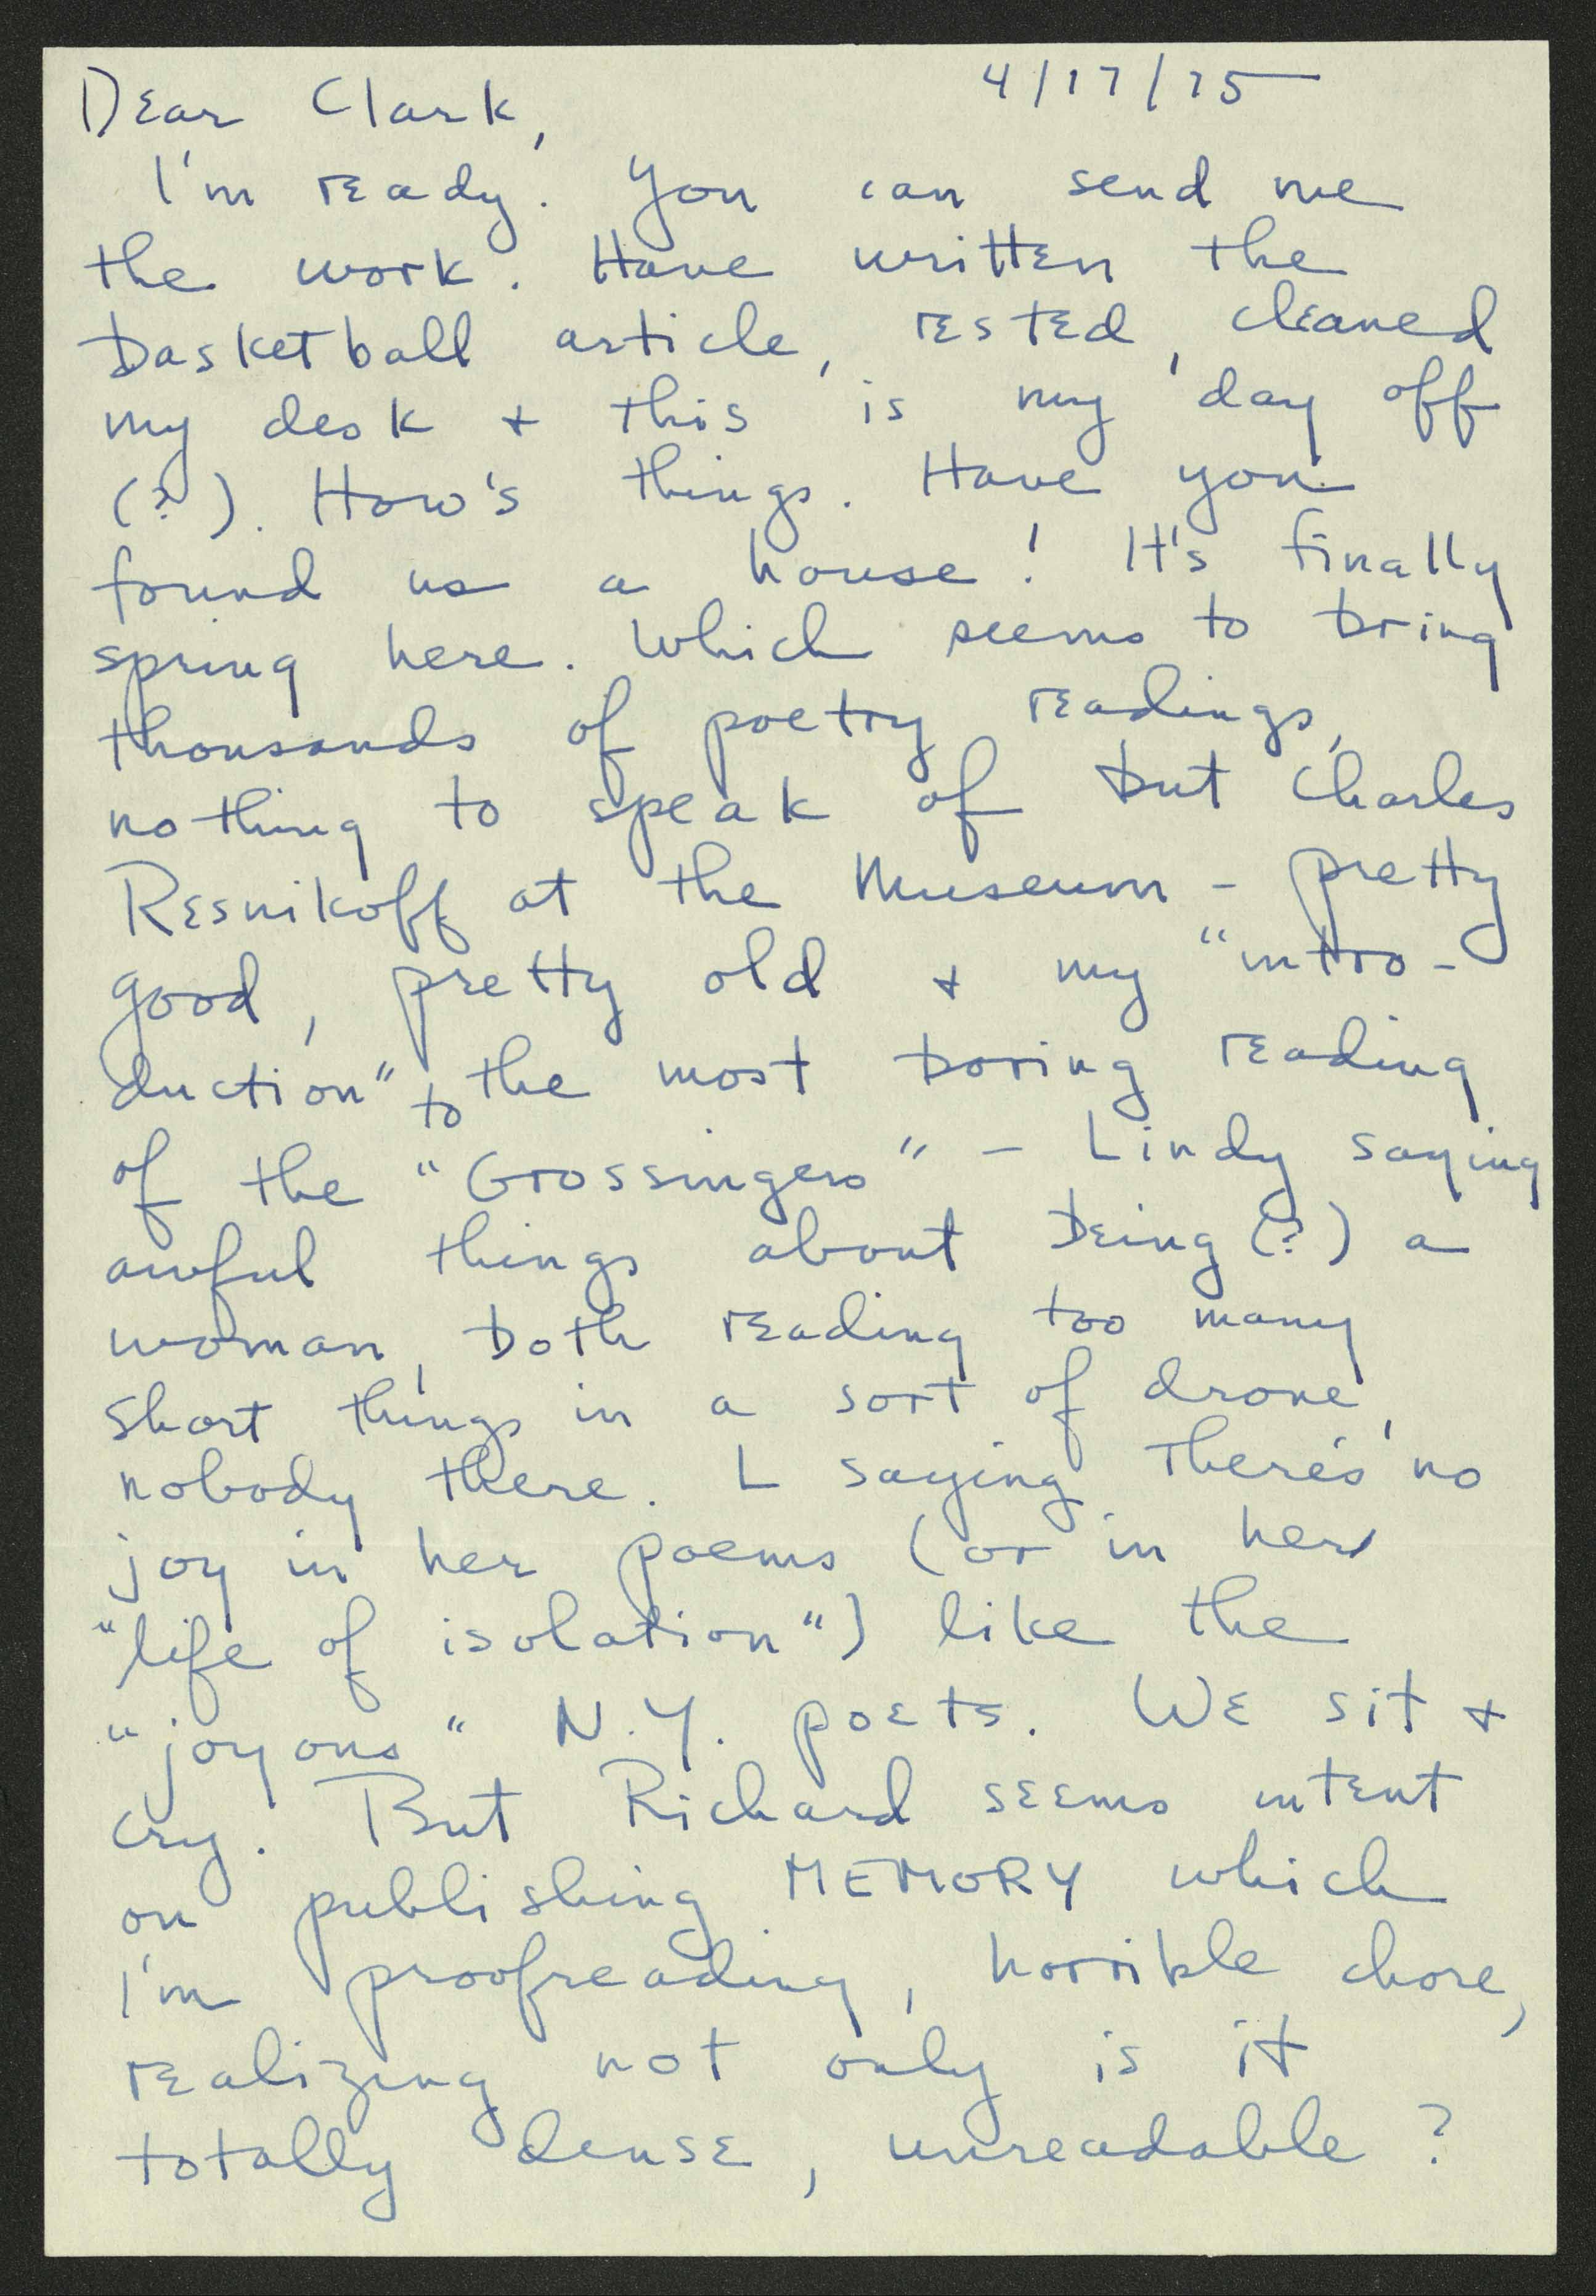 4/17/75
Dear Clark,
I'm ready. You can send me
the work. Have written the
basketball article, rested, cleaned
my desk + this is my day off
(?). How's things. Have you
found us a house! It's finally
spring here. Which seems to bring
thousands of poetry readings,
nothing to speak of but Charles
Resnikoff at the Museum - pretty
good, pretty old + my "intro-
duction" to the most boring reading
of the "Grossingers" - Lindy saying
awful things about being (?) a
woman, both reading too many
short things in a sort of drone,
nobody there. L saying there's no
joy in her poems (or in her
"life of isolation") like the
"joyous" N.Y. poets. We sit +
cry. But Richard seems intent
on publishing MEMORY which
I'm proofreading, horrible chore,
realizing not only is it
totally dense, unreadable ?